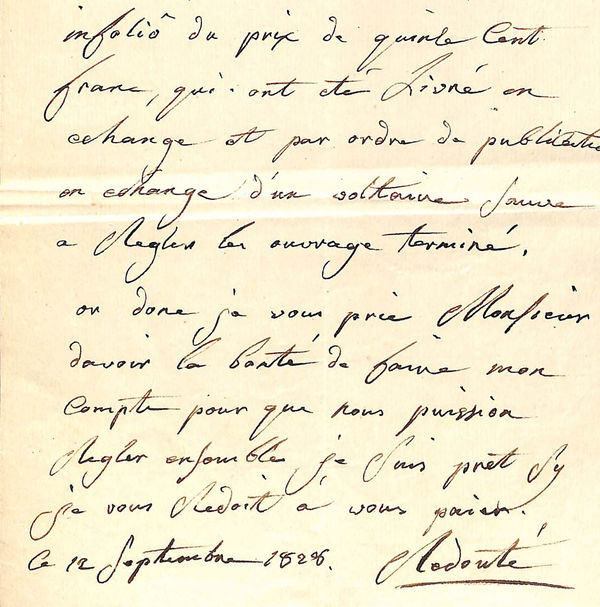 infolio du prix de quinle Cent
franc, qui ont été Livré en
echange et par ordre de publicatio
en echange d'un voltaire sauve
a Regler les ouvrage terminé.
or donc je vous prie Monsieur
davoir la bonté de faire mon
Compte pour que nous puission
Regler ensemble, je suis prêt Sy
je vous Redoit a vous paier.
le 12 Septembre 1828.
Redouté